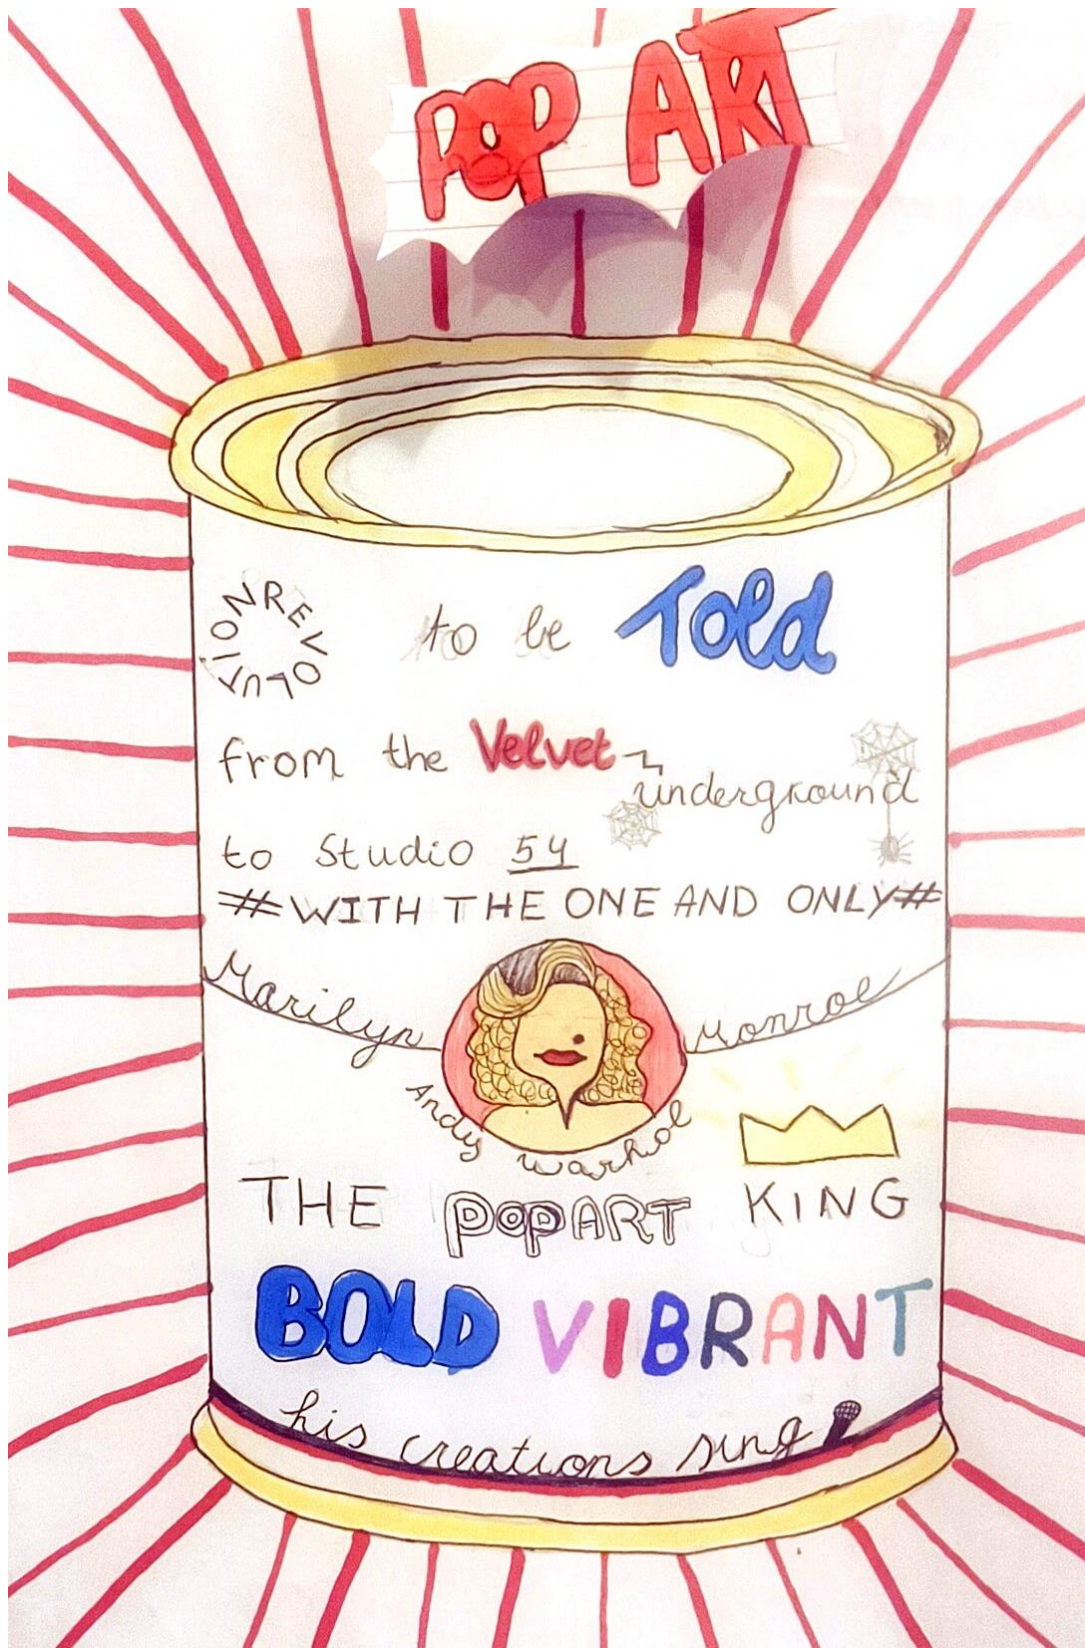 POP ART
REVOLUTION to be Told
from the Velvet
underground
to Studio 54
#WITH THE ONE AND ONLY#
Marilyn Monroe
Andy Warhol
THE POPART KING
BOLD VIBRANT
his creations sing